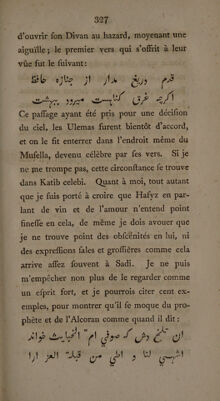 327
d'ouvrir son Divan au hazard, moyenant une
aiguille; le premier vers qui s'offrit à leur
vûe fut le suivant:
قدم دريغ مدار از جنازه حافظ
اكرچه غرق كناهست ميرود ببهشت
Ce passage ayant été pris pour une décision
du ciel, les Ulemas furent bientôt d'accord,
et on le fit enterrer dans l'endroit même du
Musella, devenu célèbre par ses vers. Si je
ne me trompe pas, cette circonstance se trouve
dans Katib celebi. Quant à moi, tout autant
que je suis porté à croire que Hafyz en par-
lant de vin et de l'amour n'entend point
finesse en cela, de même je dois avouer que
je ne trouve point des obscénités en lui, ni
des expressions sales et grossières comme cela
arrive assez souvent à Sadi. Je ne puis
m'empêcher non plus de le regarder comme
un esprit fort, et je pourrois citer cent ex-
emples, pour montrer qu'il se moque du pro-
phète et de l'Alcoran comme quand il dit:
ان تلخ وش كه صوفي ام الخبايث خواند
اشهي لنا و احلي من قبلة العذارا